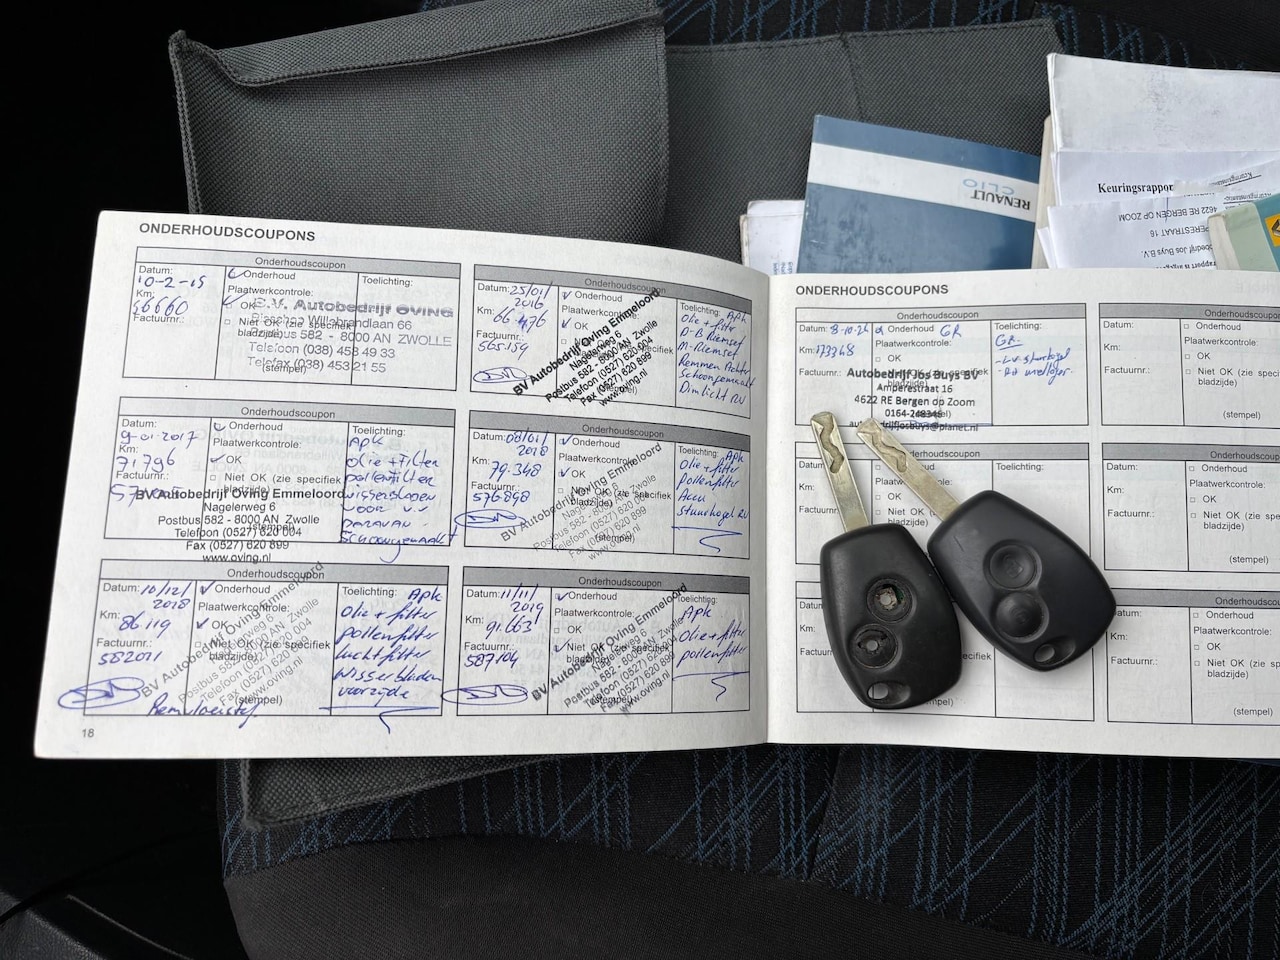 ONDERHOUDSCOUPONS
Onderhoudscoupon
Datum:
10-2-15
Km:
56660
Factuurnr.:
Onderhoud
Plaatwerkcontrole:
OK
Niet OK (zie specifiek
bladzijde)
(stempel)
Toelichting:
B.V. Autobedrijf OVING
Bisschop Willebrandlaan 66
Postbus 582 - 8000 AN ZWOLLE
Telefoon (038) 453 49 33
Telefax (038) 453 21 55
Onderhoudscoupon
Datum: 25/01/
2016
Km:
66.476
Factuurnr.:
565159
Onderhoud
Plaatwerkcontrole:
OK
Toelichting: Apk
olie + filter
D-B Riemset
M-Riemset
Remmen Achter
Schoongemaakt
Dimlicht RV
BV Autobedrijf Oving Emmeloord
Nagelerweg 6
Postbus 582 - 8000 AN Zwolle
Telefoon (0527) 620 004
Fax (0527) 620 899
www.oving.nl
Onderhoudscoupon
Datum:
9-01-2017
Km:
71796
Factuurnr.:
Onderhoud
Plaatwerkcontrole:
OK
Niet OK (zie specifiek
bladzijde)
(stempel)
Toelichting:
Apk
olie + filter
pollenfilter
wisserbladen
voor
Schoongemaakt
BV Autobedrijf Oving Emmeloord
Nagelerweg 6
Postbus 582 - 8000 AN Zwolle
Telefoon (0527) 620 004
Fax (0527) 620 899
www.oving.nl
Onderhoudscoupon
Datum: 08/01/
2018
Km:
79.348
Factuurnr.:
576898
Onderhoud
Plaatwerkcontrole:
OK
Niet OK (zie specifiek
bladzijde)
(stempel)
Toelichting: Apk
Olie + filter
Pollenfilter
Accu
Stuurkogel RV
BV Autobedrijf Oving Emmeloord
Nagelerweg 6
Postbus 582 - 8000 AN Zwolle
Telefoon (0527) 620 004
Fax (0527) 620 899
www.oving.nl
Onderhoudscoupon
Datum: 10/12/
2018
Km:
86.119
Factuurnr.:
582021
Onderhoud
Plaatwerkcontrole:
OK
Niet OK (zie specifiek
bladzijde)
(stempel)
Toelichting: Apk
Olie + filter
pollenfilter
luchtfilter
wisserbladen
voorzijde
Remvloeistof
BV Autobedrijf Oving Emmeloord
Nagelerweg 6
Postbus 582 - 8000 AN Zwolle
Telefoon (0527) 620 004
Fax (0527) 620 899
www.oving.nl
Onderhoudscoupon
Datum: 11/11/
2019
Km:
91.663
Factuurnr.:
587104
Onderhoud
Plaatwerkcontrole:
OK
Niet OK (zie specifiek
bladzijde)
(stempel)
Toelichting: Apk
Olie + filter
pollenfilter
BV Autobedrijf Oving Emmeloord
Nagelerweg 6
Postbus 582 - 8000 AN Zwolle
Telefoon (0527) 620 004
Fax (0527) 620 899
www.oving.nl
18
ONDERHOUDSCOUPONS
Onderhoudscoupon
Datum: 8-10-24
Km: 173348
Factuurnr.:
Onderhoud GR
Plaatwerkcontrole:
OK
Niet OK (zie specifiek
bladzijde)
(stempel)
Toelichting:
GR.
Autobedrijf Jos Buys BV
Amperestraat 16
4622 RE Bergen op Zoom
autobedrijfjosbuys@planet.nl
Datum:
Km:
Factuurnr.:
Onderhoud
Plaatwerkcontrole:
OK
Niet OK (zie specifiek
bladzijde)
(stempel)
Onderhoudscoupon
Datum:
Km:
Factuurnr.:
Onderhoud
Plaatwerkcontrole:
OK
Niet OK
bladzijde)
Toelichting:
Onderhoudscou
Datum:
Km:
Factuurnr.:
Onderhoud
Plaatwerkcontrole:
OK
Niet OK (zie spe
bladzijde)
(stempel)
Datum:
Km:
Factuurnr.:
Toelichting:
Onderhoudscou
Datum:
Km:
Factuurnr.:
Onderhoud
Plaatwerkcontrole:
OK
Niet OK (zie spec
bladzijde)
(stempel)
RENAULT
CLIO
Keuringsrappor
4622 RE BERGEN OP ZOOM
PERESTRAAT 16
obedrijf Jos Buys B.V.